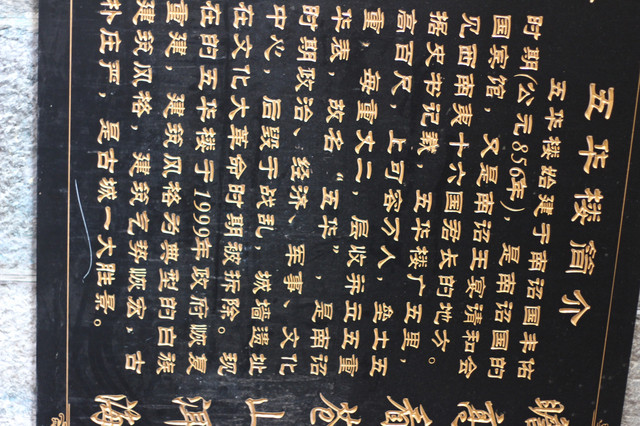 五华楼简介
五华楼始建于南诏国丰佑
时期(公元856年),是南诏国的
国宾馆,又是南诏王宴请和会
见西南夷十六国君长的地方。
据史书记载,五华楼广五里,
高百尺,上可容万人,叠土五
重,每重丈二,层收并立五重
华表,故名“五华”,是南诏
时期政治、经济、军事、文化
中心,后毁于战乱,城墙遗址
在文化大革命时期被拆除。现
在的五华楼于1999年政府恢复
重建,建筑风格为典型的白族
建筑风格,建筑气势恢宏,古
朴庄严,是古城一大胜景。
苍山洱海